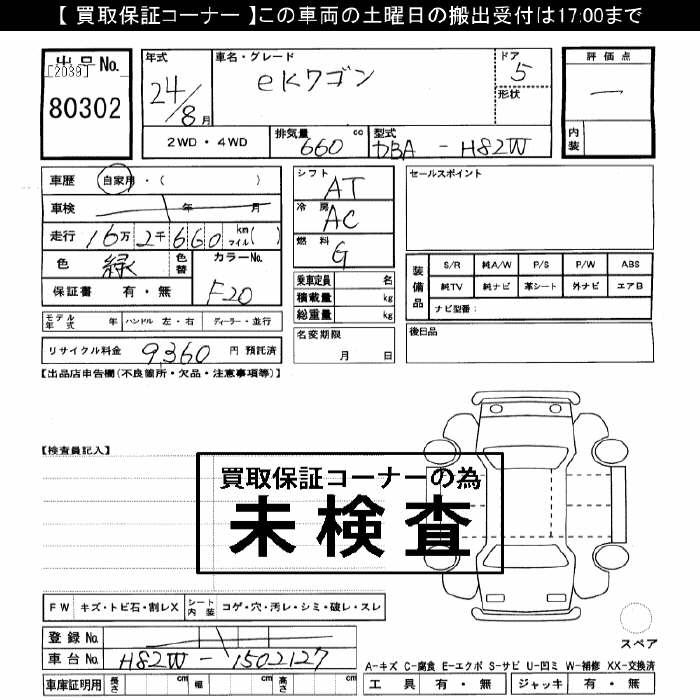 【 買取保証コーナー 】この車両の土曜日の搬出受付は17:00まで
出品No.
[2039]
80302
年式
24/8月
車名・グレード
eKワゴン
ドア
5
形状
評価点
一
内装
2WD・4WD
排気量
660 cc
型式
DBA - H82W
車歴 自家用・( )
車検 年 月
走行 16万2千660 km マイル( )
色 緑 色替
カラーNo.
F20
保証書 有・無
モデル年式 年 ハンドル 左・右 ディーラー・並行
リサイクル料金 9,360 円 預託済
シフト
AT
冷房
AC
燃料
G
乗車定員 名
積載量 kg
総重量 kg
名変期限
月 日
セールスポイント
装備品
S/R 純A/W P/S P/W ABS
純TV 純ナビ 革シート 外ナビ エアB
ナビ型番:
後日品
【出品店申告欄(不良箇所・欠品・注意事項等)】
【検査員記入】
買取保証コーナーの為
未検査
FW キズ・トビ石・割レX シート内装 コゲ・穴・汚レ・シミ・破レ・スレ
登録No.
車台No. H82W - 1502127
車庫証明用 長さ cm 幅 cm 高さ cm
スペア
A-キズ C-腐食 E-エクボ S-サビ U-凹ミ W-補修 XX-交換済
工具 有・無 ジャッキ 有・無